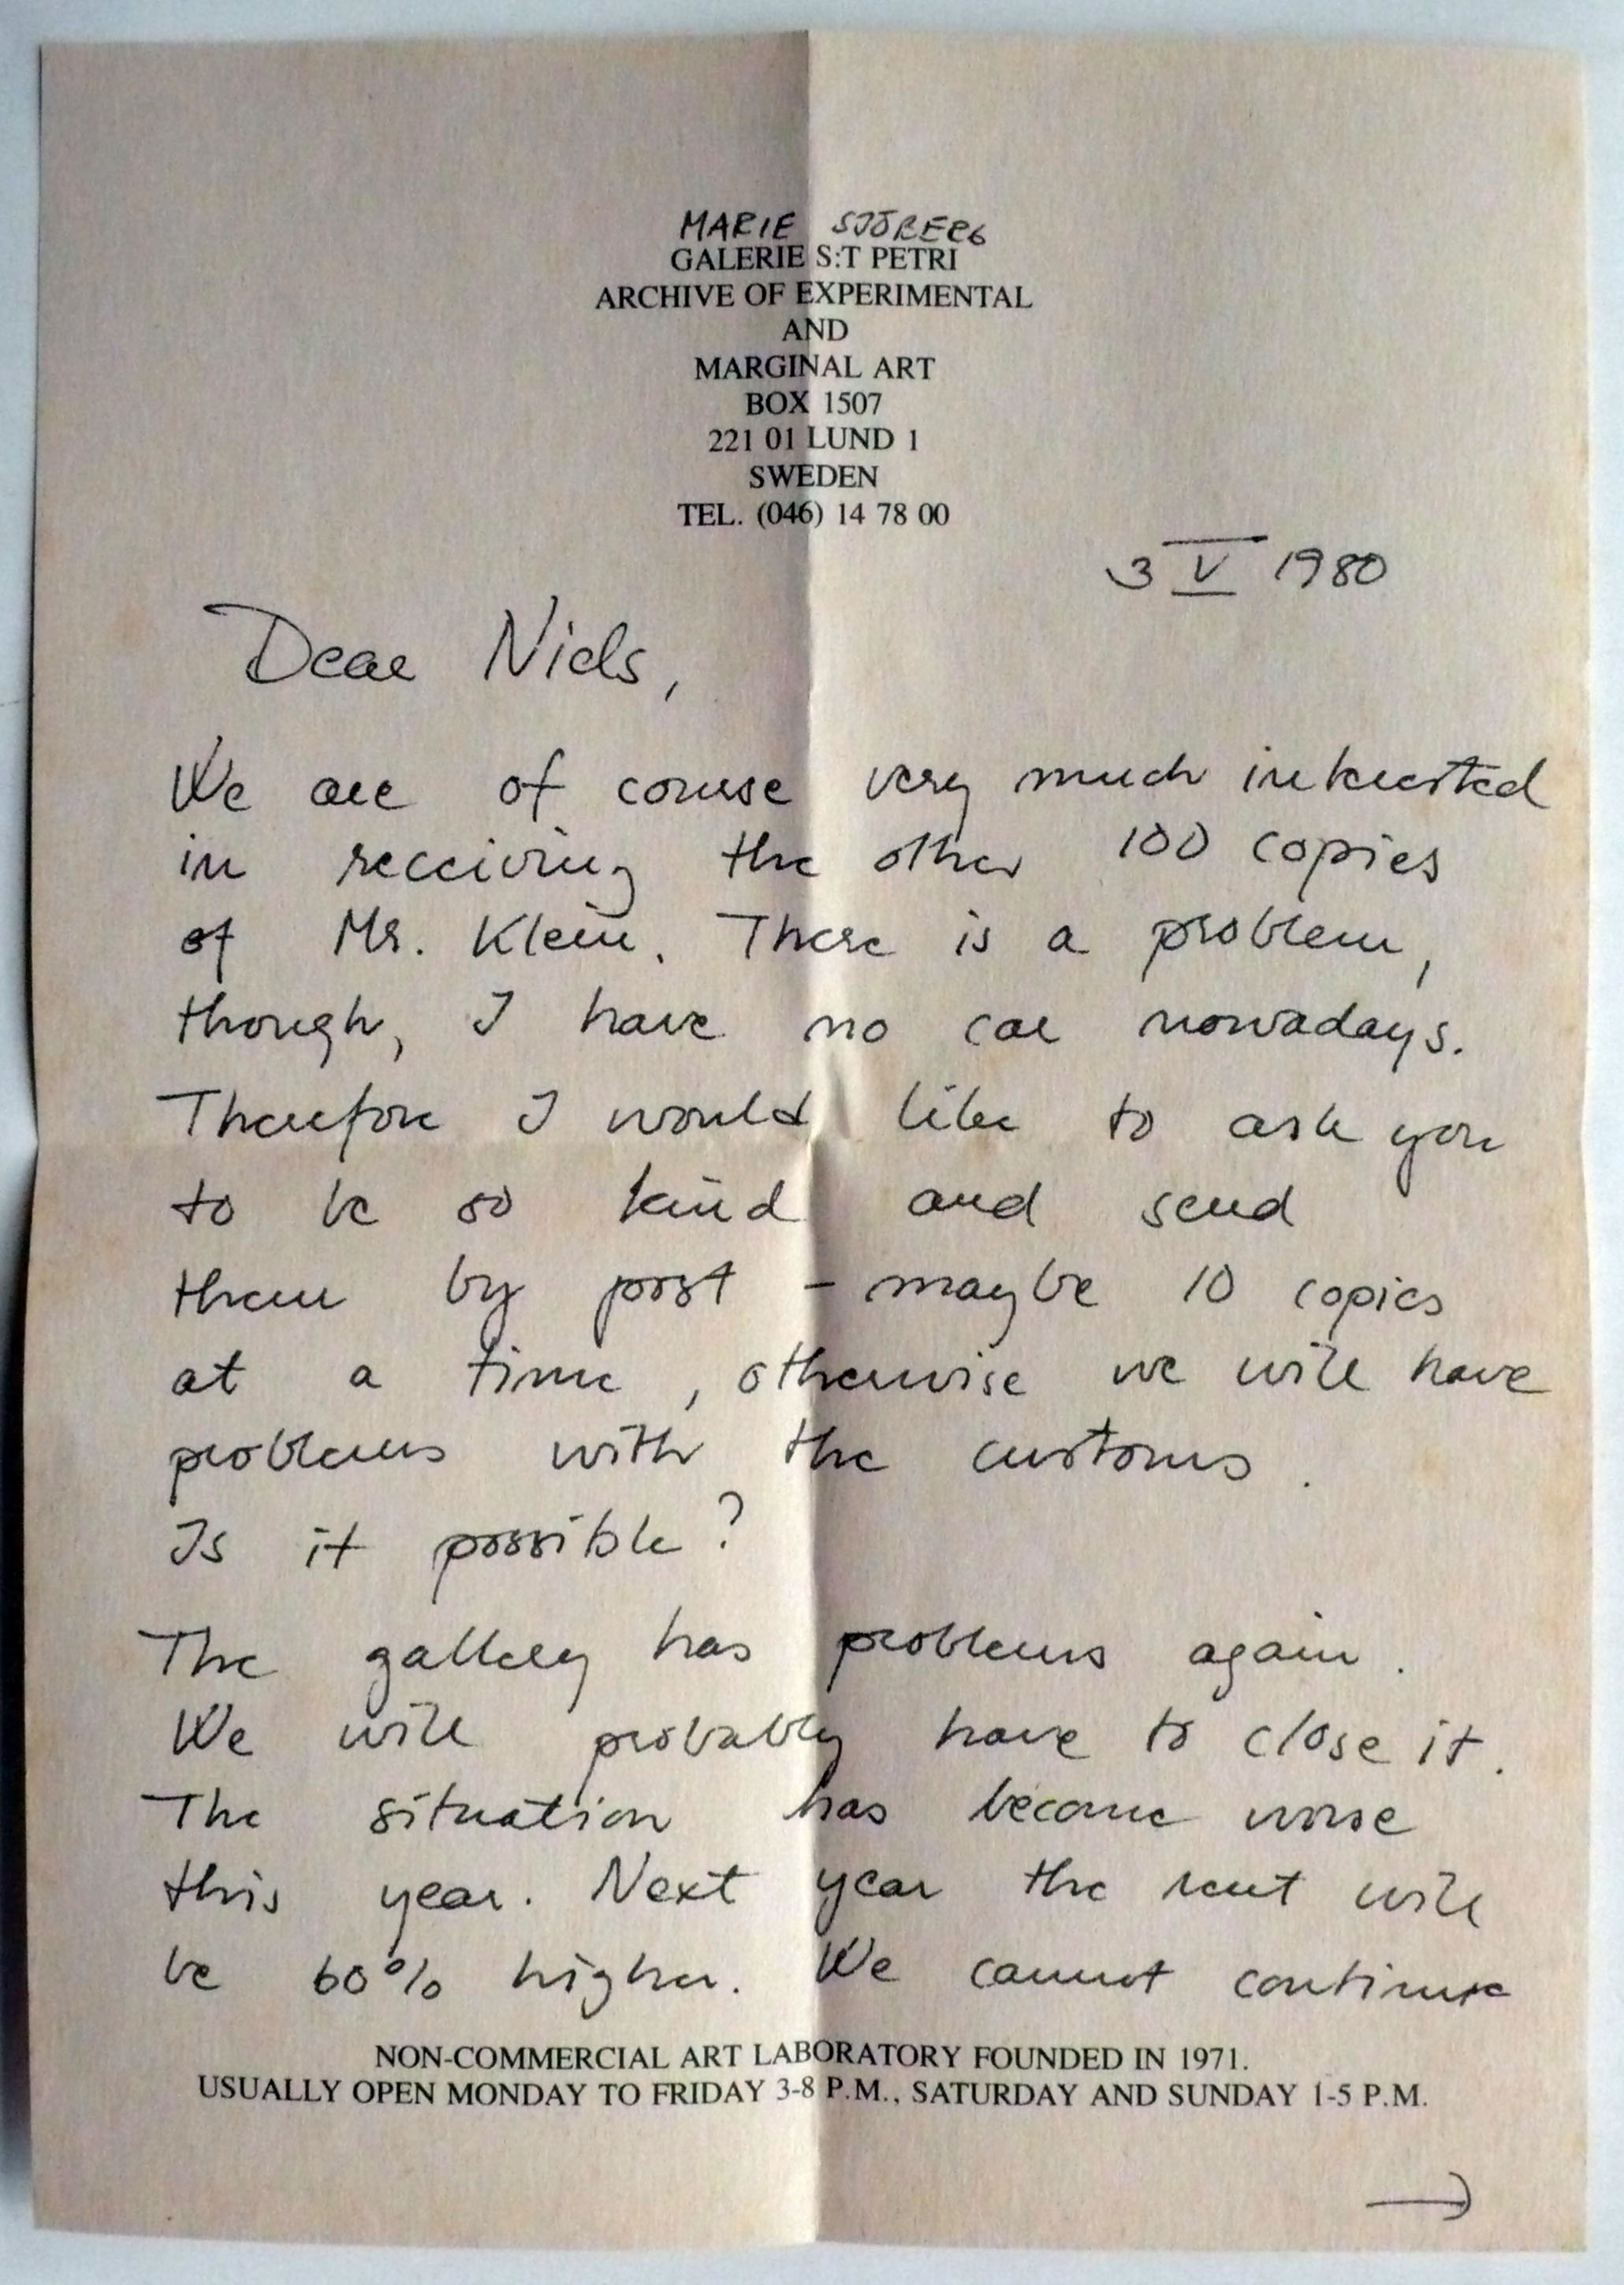 MARIE SJÖBERG
GALERIE S:T PETRI
ARCHIVE OF EXPERIMENTAL
AND
MARGINAL ART
BOX 1507
221 01 LUND 1
SWEDEN
TEL. (046) 14 78 00
3 V 1980
Dear Niels,
We are of course very much interested
in receiving the other 100 copies
of Mr. Klein. There is a problem,
though, I have no car nowadays.
Therefore I would like to ask you
to be so kind and send
them by post – maybe 10 copies
at a time, otherwise we will have
problems with the customs.
Is it possible?
The gallery has problems again.
We will probably have to close it.
The situation has become worse
this year. Next year the rent will
be 60% higher. We cannot continue
NON-COMMERCIAL ART LABORATORY FOUNDED IN 1971.
USUALLY OPEN MONDAY TO FRIDAY 3-8 P.M., SATURDAY AND SUNDAY 1-5 P.M.
→